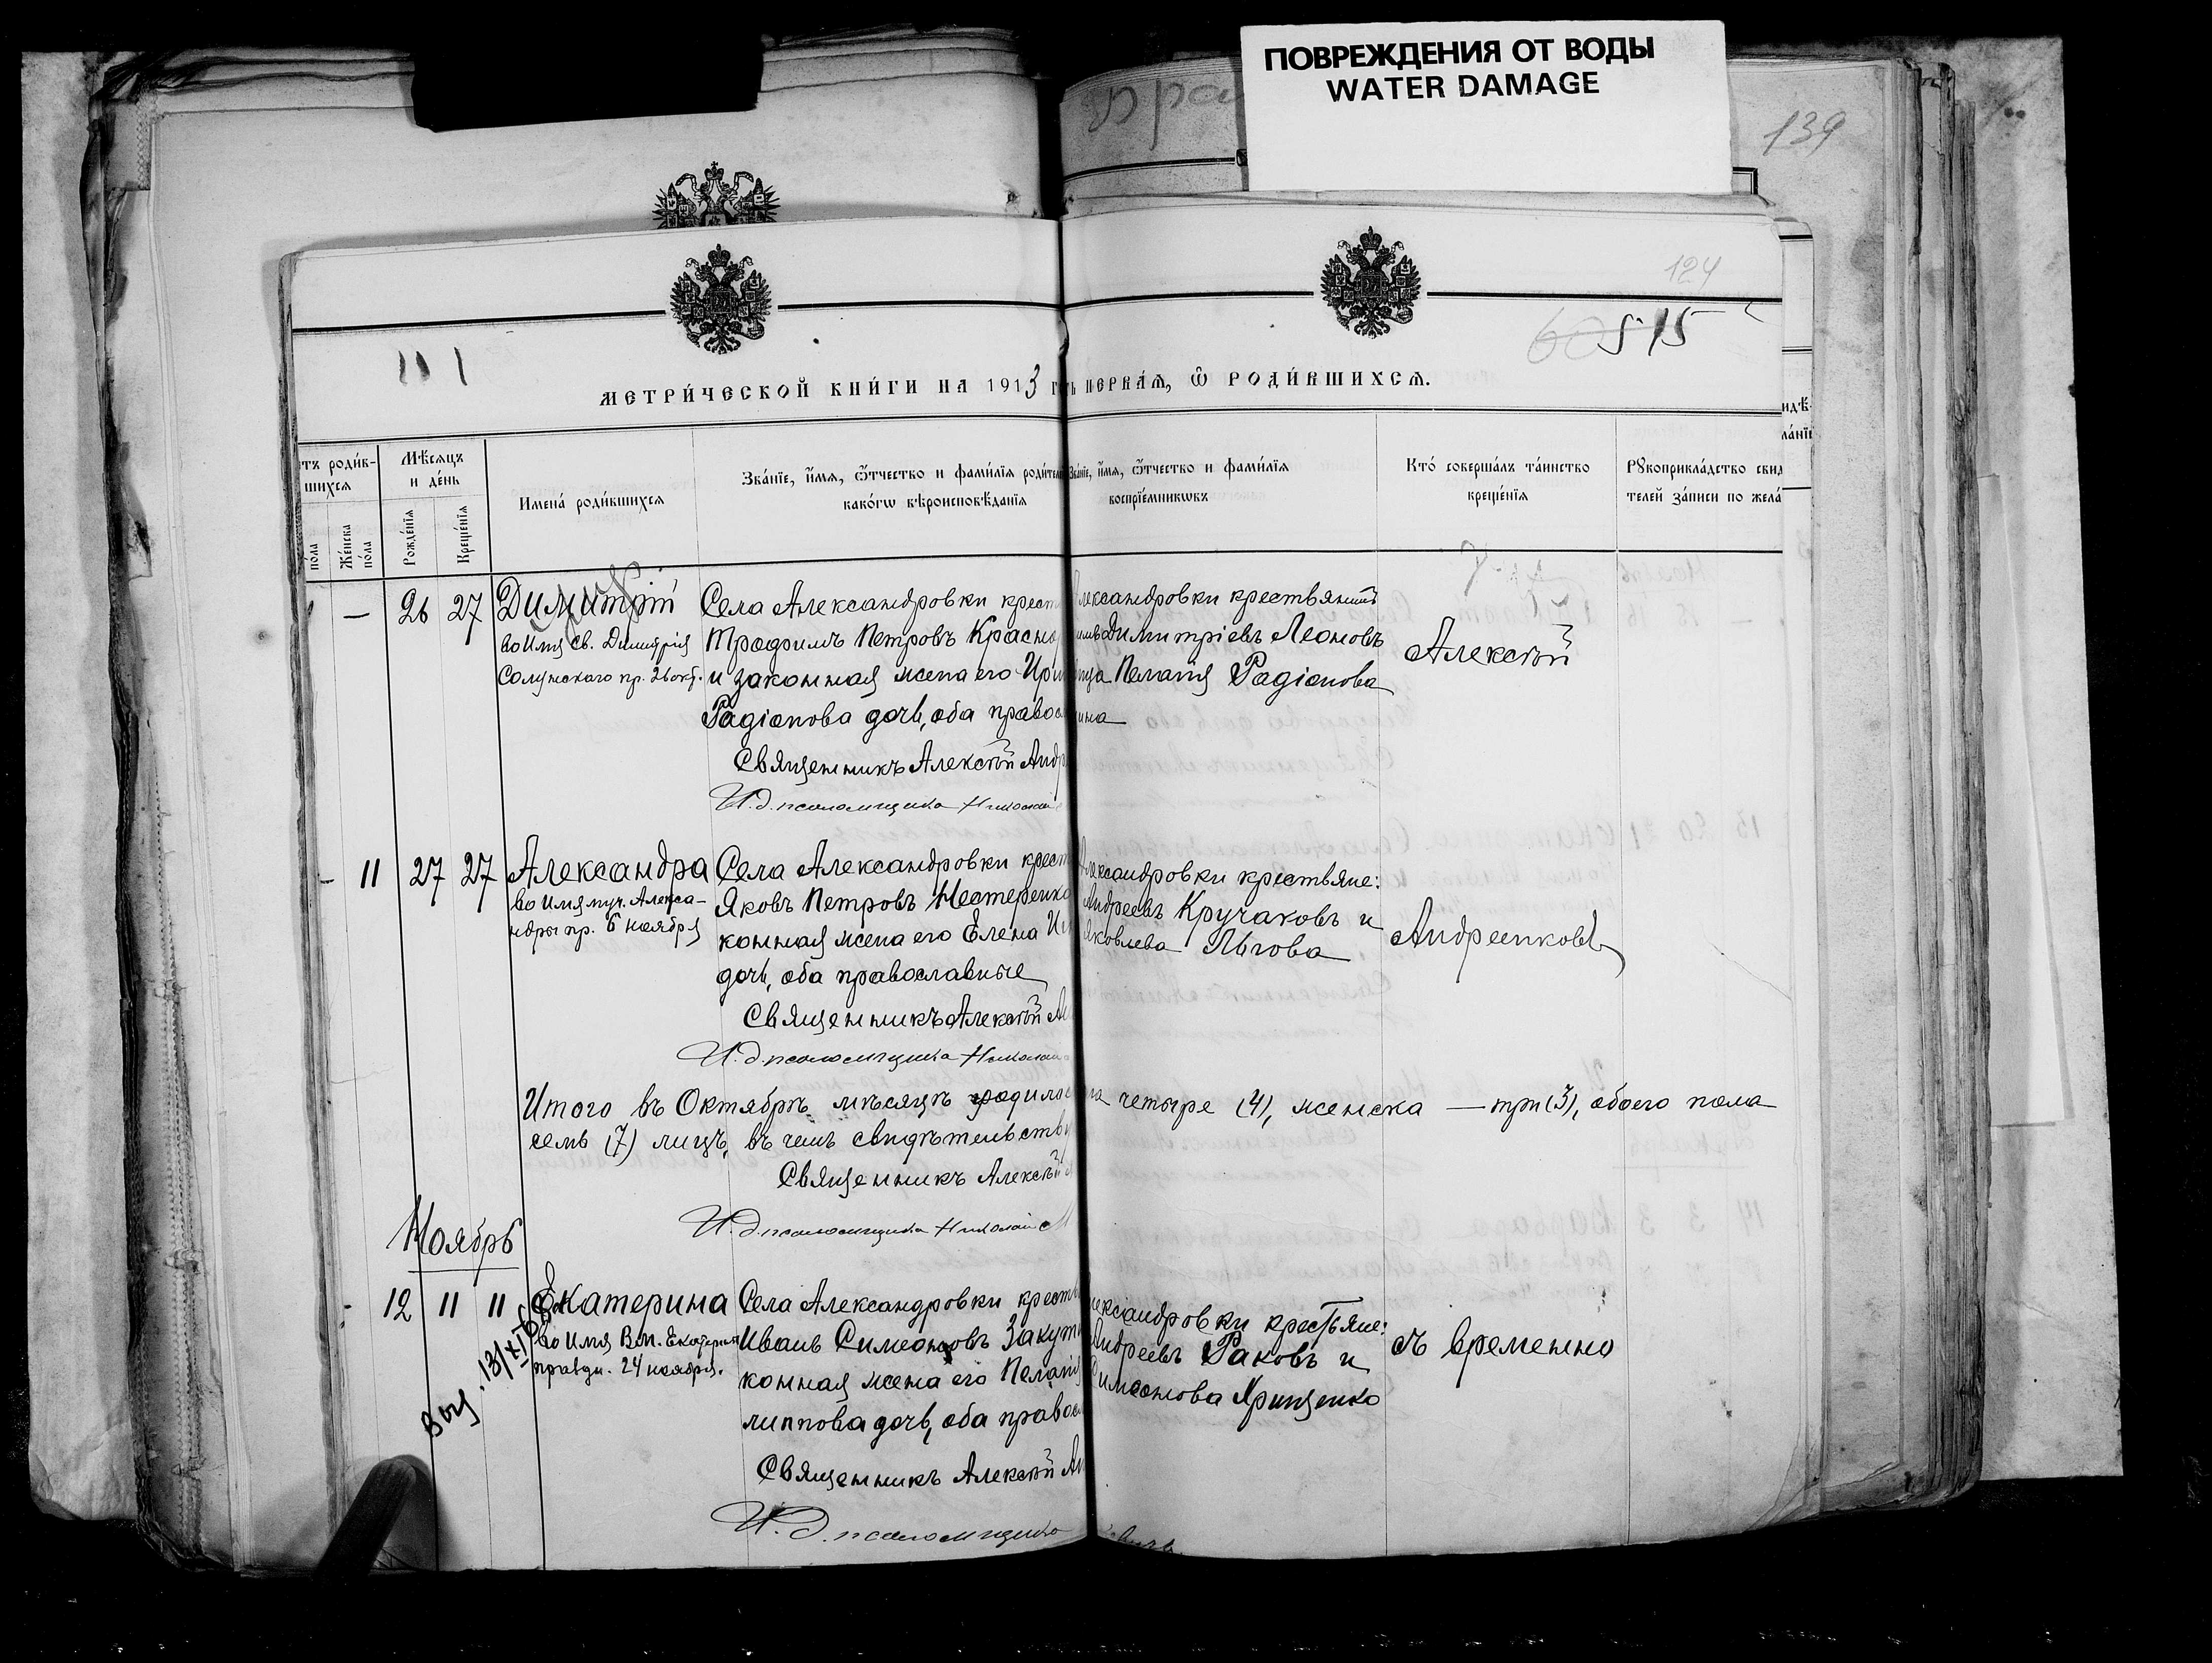 ПОВРЕЖДЕНИЯ ОТ ВОДЫ
WATER DAMAGE
Кра
139
124
515
111
МЕТРИ́ЧЕСКОЙ КНИ́ГИ НА 1913 г ть ПЕРВА́Ѧ, Ѿ РОДИ́ВШИХСѦ.
тъ роди́в-
шихсѧ
по́ла
Же́нска по́ла
Мѣ́сѧцъ и де́нь
Рожде́нїѧ
Креще́нїѧ
Имена́ роди́вшихсѧ
Зва́нїе, и́мѧ, ѻ҆́тчество и фами́лїѧ роди́тел
како́гѡ вѣроисповѣ́данїѧ
Зва́нїе, и́мѧ, ѻ҆́тчество и фами́лїѧ
воспрїе́мникѡвъ
Кто́ соверша́лъ та́инство
креще́нїѧ
Рꙋкоприкла́дство свид
телей за́писи по жела́
— 26 27
Димитрій
во имя св. Димитрія
Солунскаго пр. 26 окт.
Села Александровки крест
Трофимъ Петровъ Красно
и законная жена его Ири
Радіонова дочь, оба правос
Священникъ Алексѣй Андр
И. д. псаломщика Николай
лександровки крестьянинъ
Димитріевъ Леоновъ
ица Пелагія Радіонова
Алексѣй
- 11 27 27
Александра
во имя муч. Алекса-
ндры пр. 6 ноября
Села Александровки крест
Яковъ Петровъ Нестеренко
конная жена его Елена
дочь, оба православные
Священникъ Алексѣй
И. д. псаломщика Николай
лександровки крестьяне:
Андреевъ Кручаковъ и
Яковлева Льгова
Андреенковъ
Итого въ Октябрѣ мѣсяцѣ родилос на четыре (4), женска — три (3), обоего пола
семь (7) лицъ, въ чемъ свидѣтельству
Священникъ Алексѣй
И. д. псаломщика Николай М
Ноябрь
12 11 11
Екатерина
во имя В.м. Екатерины
праздн. 24 ноября.
Села Александровки кресть
Иванъ Симеоновъ Закут
конная жена его Пелагія
липпова дочь, оба правос
Священникъ Алексѣй Ан
И. д. псаломщика
лександровки крестьяне:
Андреевъ Раковъ и
Симеонова Грищенко
съ временно